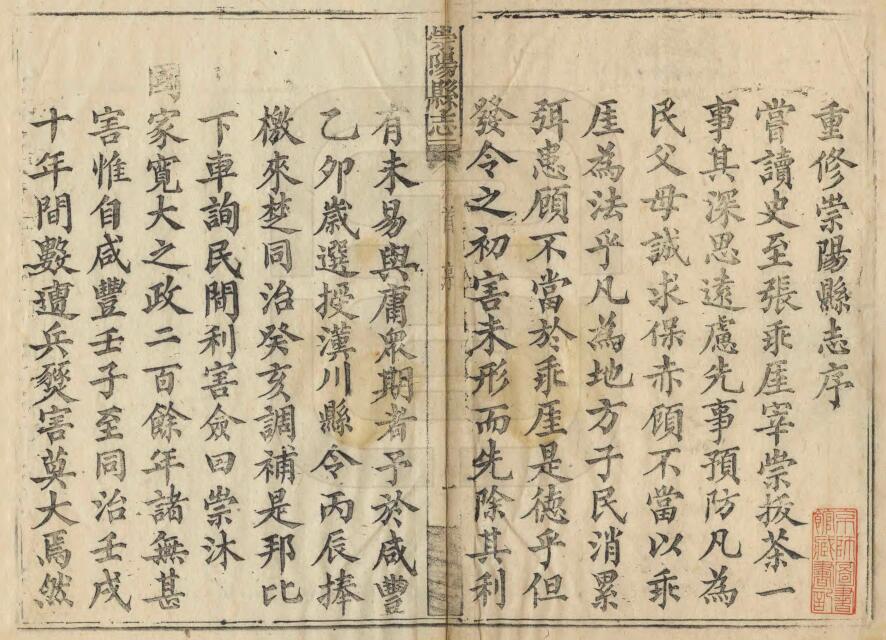 重修崇陽縣志序
嘗讀史至張乖厓宰崇拔茶一
事其深思遠慮先事預防凡為
民父母誠求保赤顧不當以乖
厓為法乎凡為地方子民消累
弭患顧不當於乖厓是德乎但
發令之初害未形而先除其利
崇陽縣志
首序
一
有未易與庸眾期者予於咸豐
乙卯歲選授漢川縣令丙辰捧
檄來楚同治癸亥調補是邦比
下車詢民間利害僉曰崇沐
國家寬大之政二百餘年諸無甚
害惟自咸豐壬子至同治壬戌
十年間數遭兵燹害莫大焉然
京師圖書
館藏書記